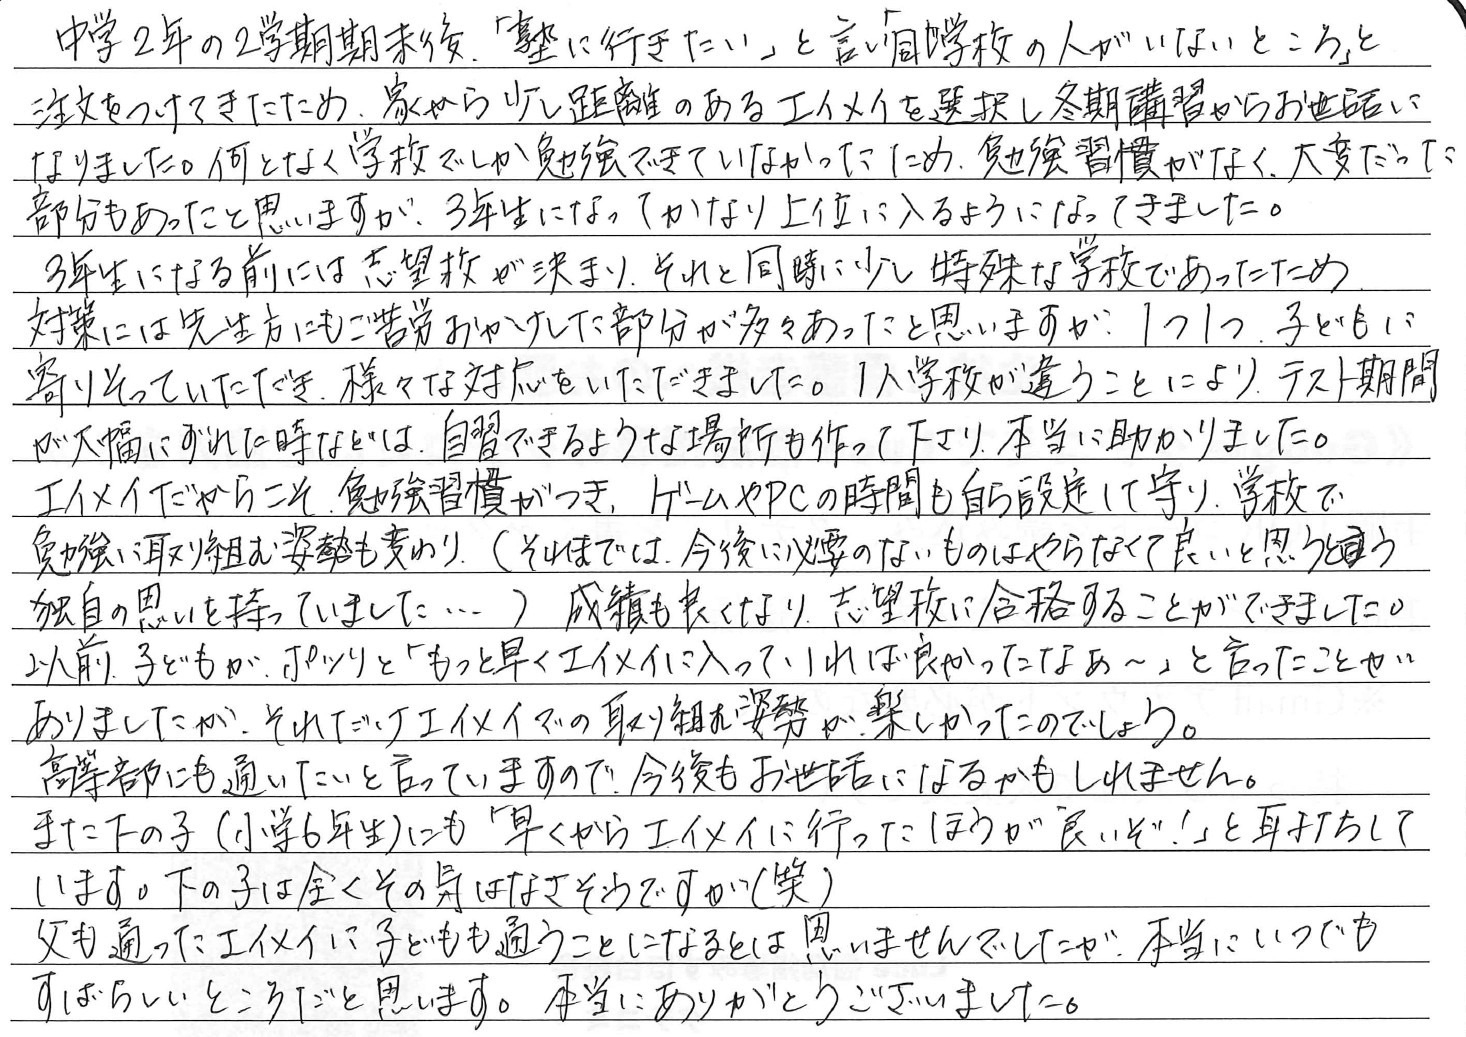 中学2年の2学期期末後、「塾に行きたい」と言い「同中学校の人がいないところ」と
注文をつけてきたため、家から少し距離のあるエイメイを選択し冬期講習からお世話に
なりました。何となく学校でしか勉強できていなかったため、勉強習慣がなく、大変だった
部分もあったと思いますが、3年生になってかなり上位に入るようになってきました。
3年生になる前には志望校が決まり、それと同時に少し特殊な学校であったため
対策には先生方にもご苦労おかけした部分が多々あったと思いますが、1つ1つ、子どもに
寄りそっていただき、様々な対応をいただきました。1人学校が違うことにより、テスト期間
が大幅にずれた時などは、自習できるような場所も作って下さり、本当に助かりました。
エイメイだからこそ、勉強習慣がつき、ゲームやPCの時間も自ら設定して守り、学校で
勉強に取り組む姿勢も変わり、(それまでは、今後に必要のないものはやらなくて良いと思うと言う
独自の思いを持っていました…)成績も良くなり、志望校に合格することができました。
以前、子どもが、ポツリと「もっと早くエイメイに入っていれば良かったなぁ〜」と言ったことが
ありましたが、それだけエイメイでの取り組む姿勢が、楽しかったのでしょう。
高等部にも通いたいと言っていますので、今後もお世話になるかもしれません。
また下の子(小学6年生)にも「早くからエイメイに行ったほうが良いぞ!」と耳打ちして
います。下の子は全くその気はなさそうですが(笑)
父も通ったエイメイに子どもも通うことになるとは思いませんでしたが、本当にいつでも
すばらしいところだと思います。本当にありがとうございました。